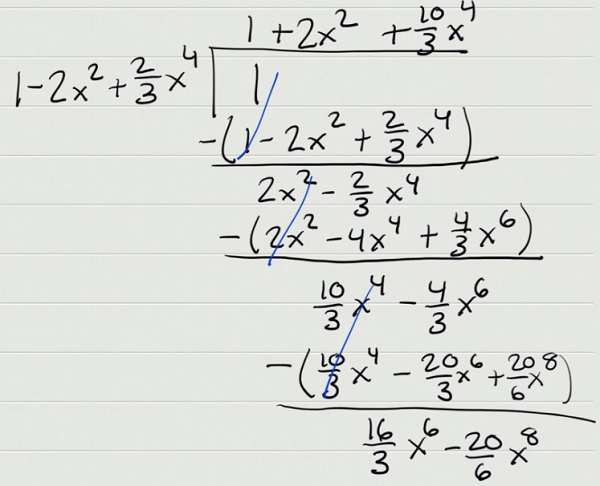 1 + 2x² + 10/3 x⁴
1 - 2x² + 2/3 x⁴ | 1
-(1 - 2x² + 2/3 x⁴)
2x² - 2/3 x⁴
-(2x² - 4x⁴ + 4/3 x⁶)
10/3 x⁴ - 4/3 x⁶
-(10/3 x⁴ - 20/3 x⁶ + 20/6 x⁸)
16/3 x⁶ - 20/6 x⁸